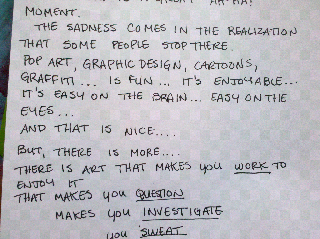 MOMENT.
THE SADNESS COMES IN THE REALIZATION
THAT SOME PEOPLE STOP THERE.
POP ART, GRAPHIC DESIGN, CARTOONS,
GRAFFITI... IS FUN... IT'S ENJOYABLE...
IT'S EASY ON THE BRAIN... EASY ON THE
EYES...
AND THAT IS NICE....
BUT, THERE IS MORE....
THERE IS ART THAT MAKES YOU WORK TO
ENJOY IT
THAT MAKES YOU QUESTION
MAKES YOU INVESTIGATE
YOU SWEAT